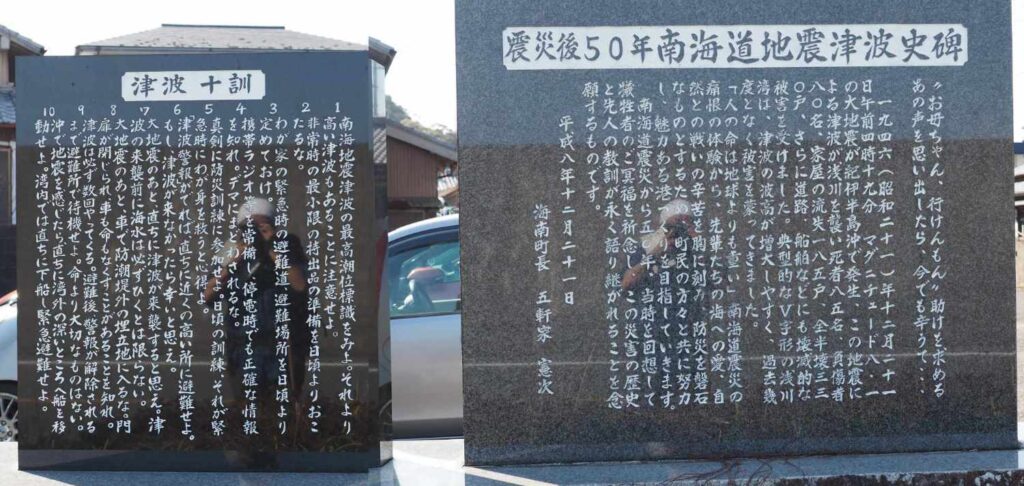 津波十訓
1 南海地震津波の最高潮位標識をみよ。それより
高い津波もあることに注意せよ。
2 非常時の最小限の持出品の準備を日頃よりおこ
たるな。
3 わが家の緊急時の避難道、避難場所を日頃より
定めておけ。
4 携帯ラジオを常に備し、停電時でも正確な情報
を知れ。デマにまどわされるな。
5 真剣に防災訓練に参加せよ。日頃の訓練、それが緊
急時にわが身を救うと心得よ。
6 津波警報がでれば、直ぐに近くの高い所に避難せよ。
もし、津波が来なかったら幸いと思え。
7 大地震のあと、直ちに津波が来襲すると思え。津
波の来襲前に海水は必ずひくとは限らない。
8 大地震のあと、車で防潮堤外の埋立地に入るな。門
扉が閉じられ車も命もなくすことがあることを知れ。
9 津波は必ず数回やってくる。避難後、警報が解除される
まで避難所で待機せよ。命より大切なものはない。
10 沖で地震を感じたら直ちに湾外の深いところへ船を移
動せよ。湾内では直ちに下船し緊急避難せよ。
震災後50年南海道地震津波史碑
"お母ちゃん、行けんもん"助けを求める
あの声を思い出したら、今でも辛うて、…
一九四六(昭和二十一)年十二月二十一
日午前四時十九分 マグニチュード八・一
の大地震が紀伊半島沖で発生 この地震に
よる津波が浅川を襲い死者八五名、負傷者
八〇名、家屋の流失一八五戸 全半壊三三
〇戸、さらに道路、船舶などにも壊滅的な
被害を受けました。典型的なV字形の浅川
湾は、津波の波高が増大しやすく、過去幾
度となく被害を蒙ってきました。
「人の命は地球よりも重い」南海道震災の
痛恨の体験から、先輩たちの海への愛、自
然との戦いの辛苦を胸に刻み、防災を磐石
なものとするため、町民の方々と共に努力
し、魅力ある港づくりを目指していきます。
南海道震災から五十年、当時を回想して
犠牲者のご冥福を祈念し、この災害の歴史
と先人の教訓が永く語り継がれることを念
願するものです。
平成八年十二月二十一日
海南町長 五軒家 憲次